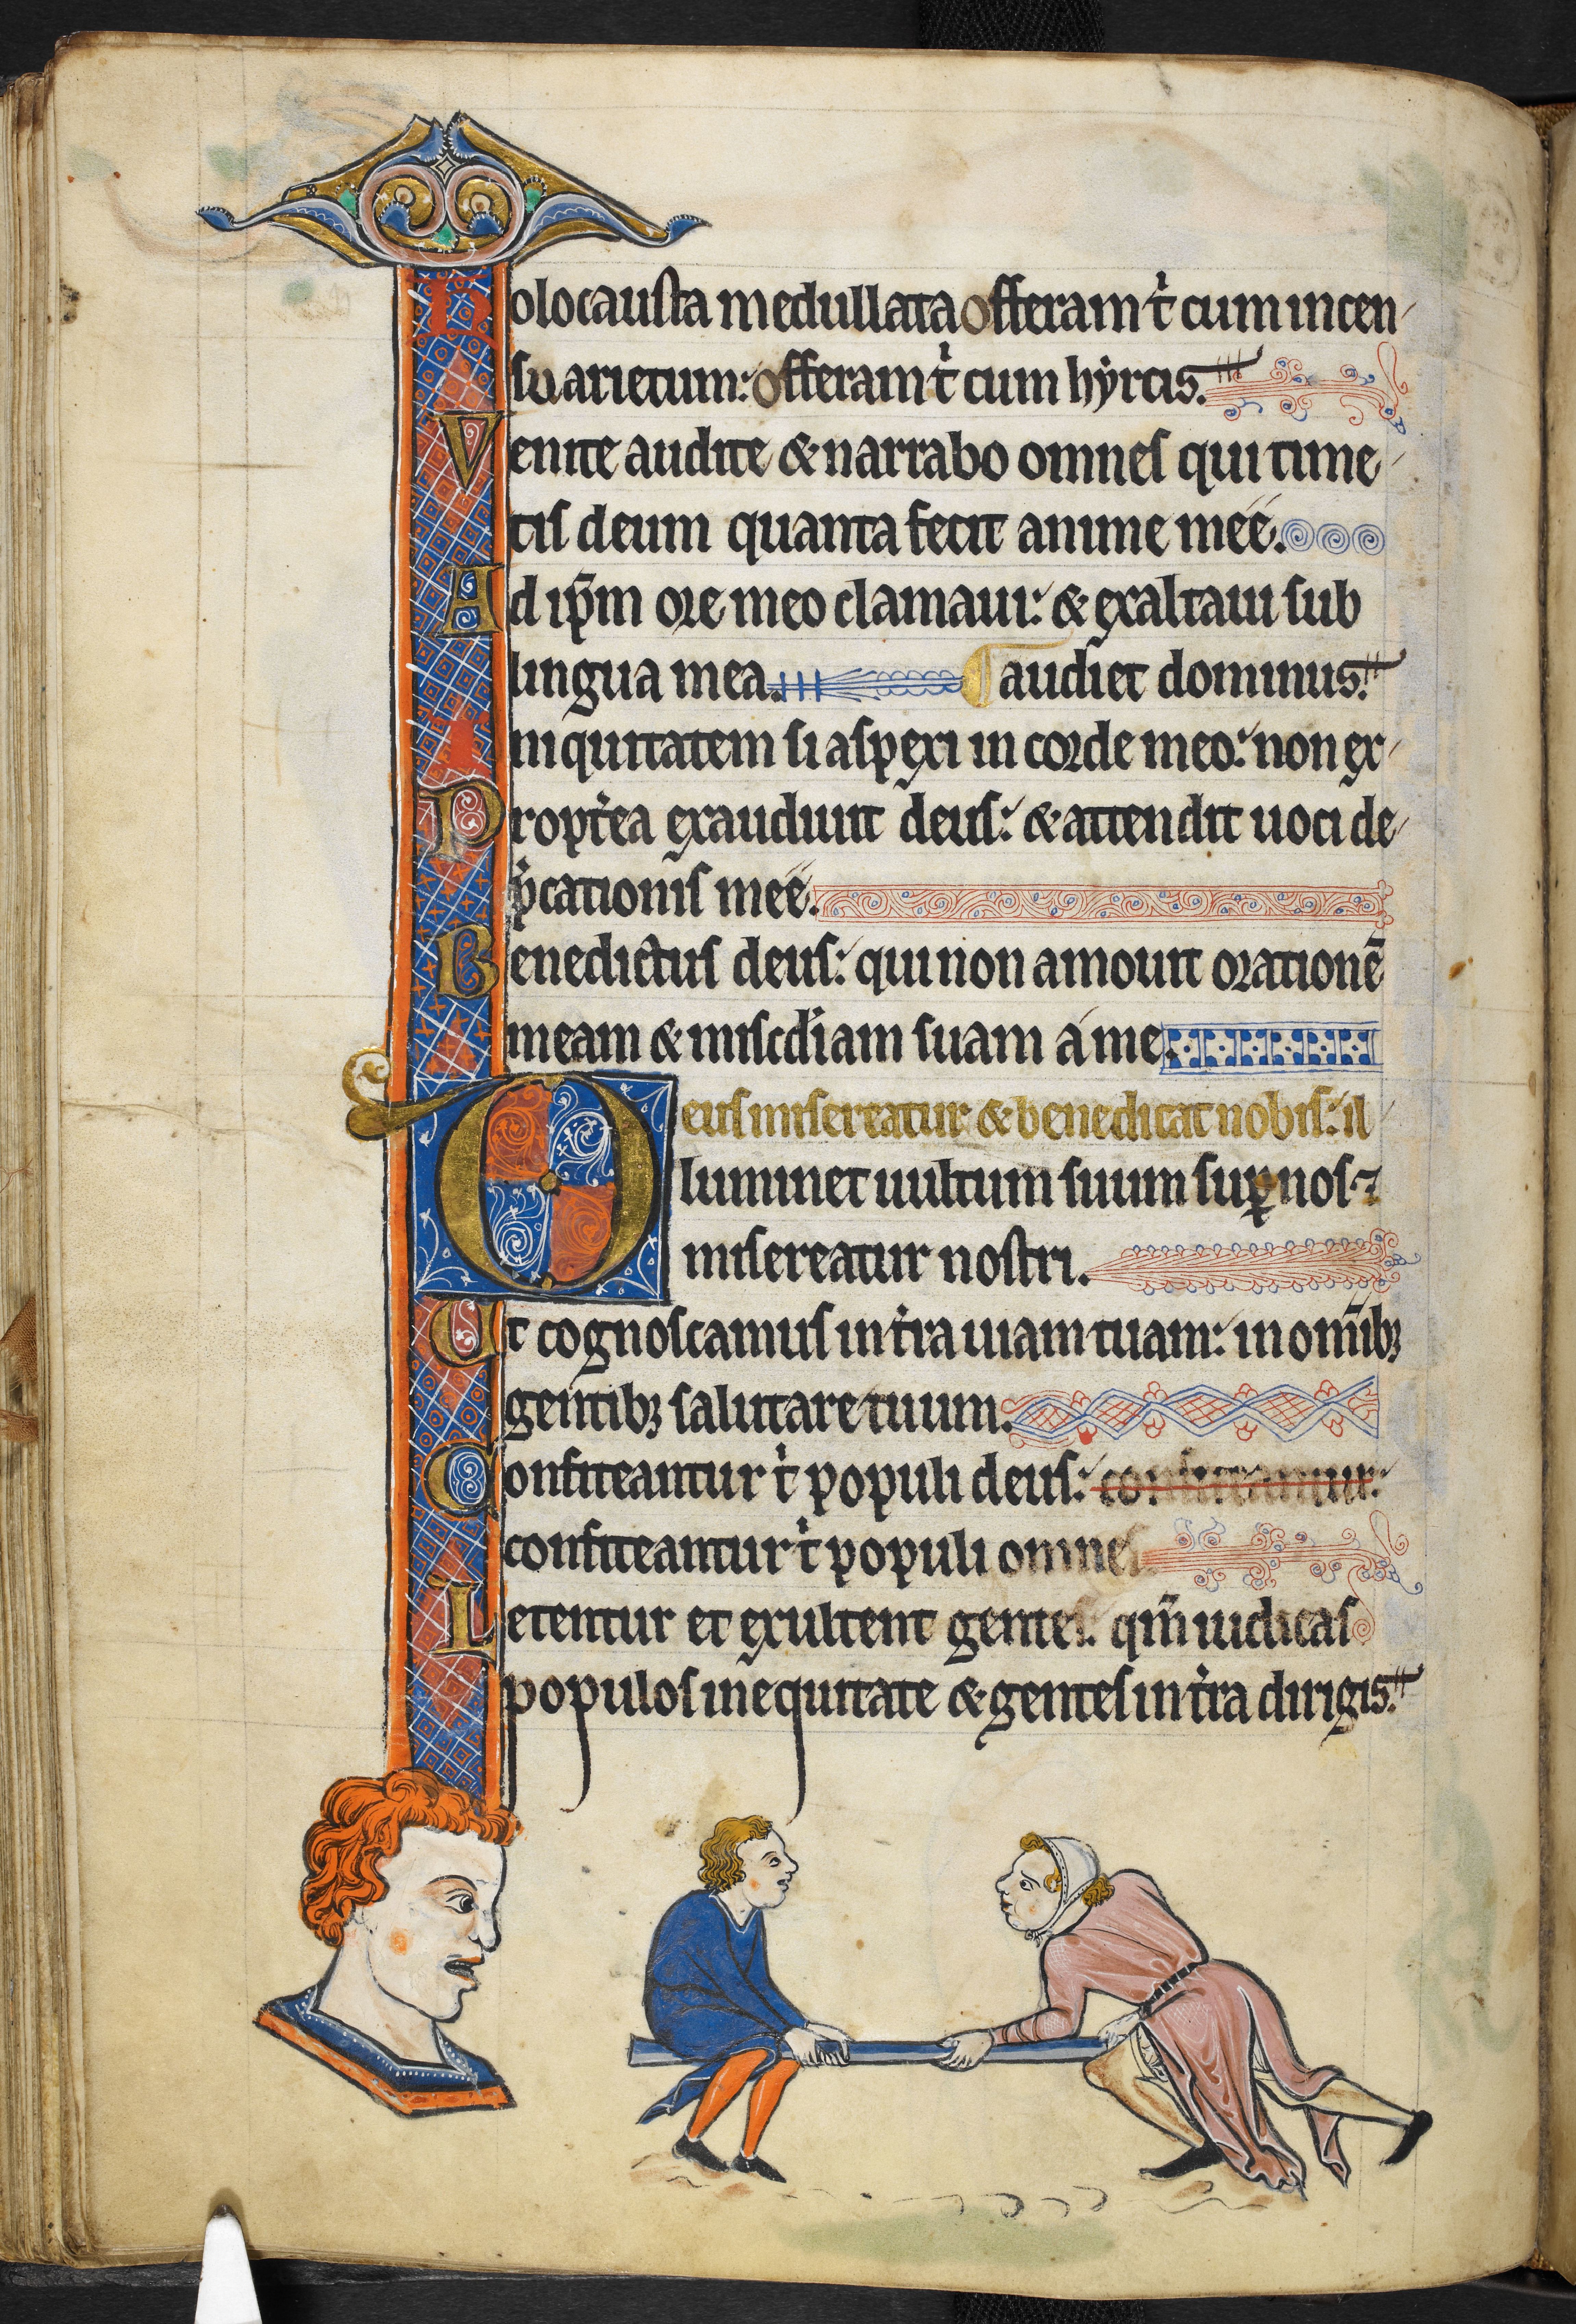 Holocausta medullata offeram t̓ cum incen
su arietum: offeram t̓ cum hẏrcis.
Venite audite & narrabo omnes qui time
tis deum quanta fecit anime meē.
Ad ip̄m ore meo clamaui: & exaltaui sub
lingua mea. audiet dominus.
Iniquitatem si aspexi in corde meo: non ex
Propt̓ea exaudiuit deus: & attendit uoci de
p̓cationis meē.
Benedictus deus: qui non amouit orationē
meam & misc̓diam suam a me.
Deus misereatur & benedicat nobis: il
luminet uultum suum suꝑ nos ⁊
misereatur nostri.
Et cognoscamus in t̓ra uiam tuam: in om̄ibꝫ
gentibꝫ salutare tuum.
Confiteantur t̓ populi deus: confiteantur:
confiteantur t̓ populi omnes.
Letentur et exultent gentes: qm̄ iudicas
populos in equitate & gentes in t̓ra dirigis.